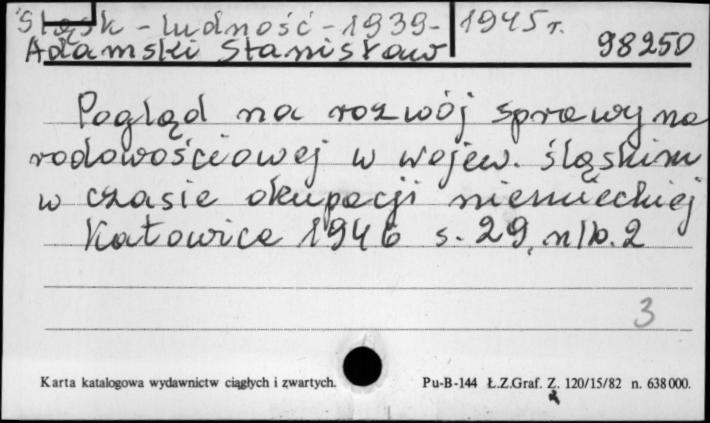 Śląsk - ludność - 1939 - 1945 r.
Adamski Stanisław 98250
Pogląd na rozwój sprawy na
rodowościowej w wojew. śląskim
w czasie okupacji niemieckiej
Katowice 1946 s. 29, nlb. 2
3
Karta katalogowa wydawnictw ciągłych i zwartych. Pu-B-144 Ł.Z.Graf. Z. 120/15/82 n. 638000.